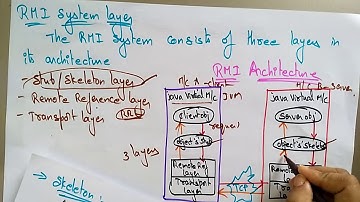 RMI System layer
The RMI System consists of three layers in
its architecture
- Stub/Skeleton layer
- Remote Reference layer
- Transport layer
(RRL)
RMI Architecture
M/c A - client
M/c B - Server
Java Virtual M/c
JVM
Java Virtual M/c
client obj
server obj
request
object's
object's skeleton
3 layers
Remote Ref
layer
Transport
layer
TCP
→ Skeleton